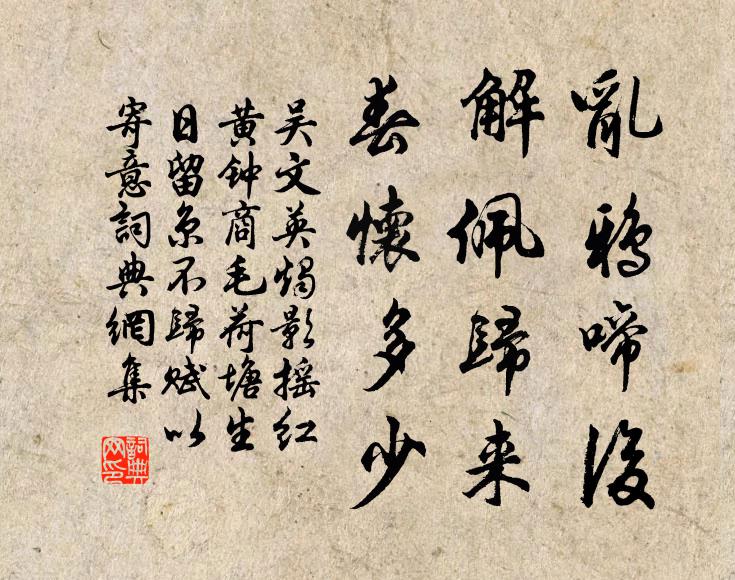 亂鴉啼後
解佩歸来
春懷多少
吴文英燭影摇红
黄钟商毛荷塘生
日留京不歸赋以
寄意詞典網集
詞典网印